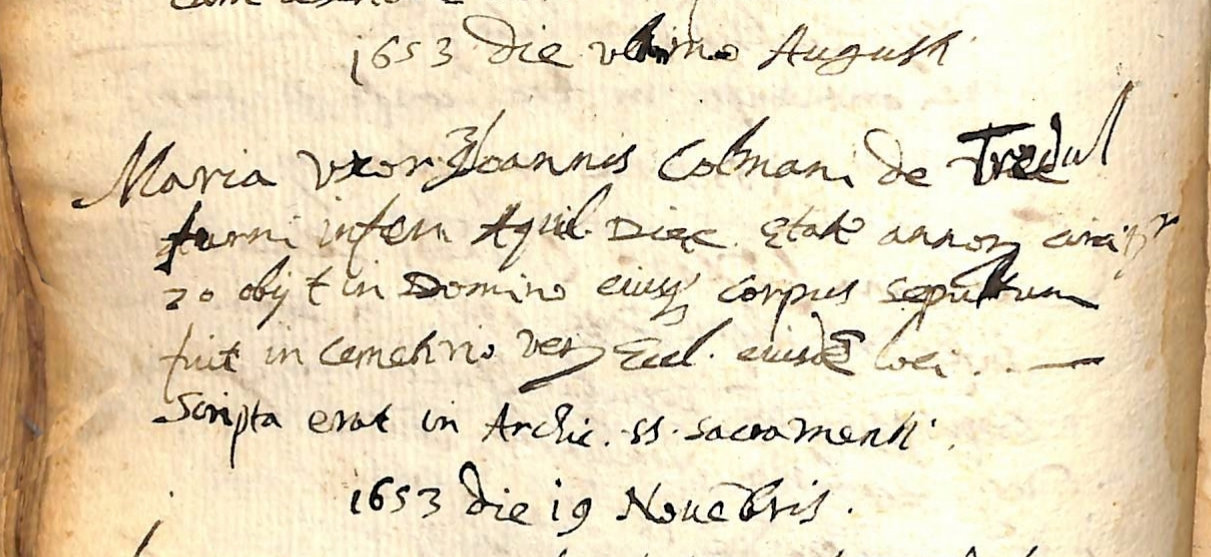 1653 die ultimo Augusti
Maria Uxor Joannis Colmani de
inferi Aquil. Diec. etate annorz circitr
20 obijt in Domino eiusq corpus sepultum
fuit in cemeterio Ecel. eiusdē loci . . —
Scripta erat in Archic. SS. Sacramenti.
1653 die 19 Nouēbris.